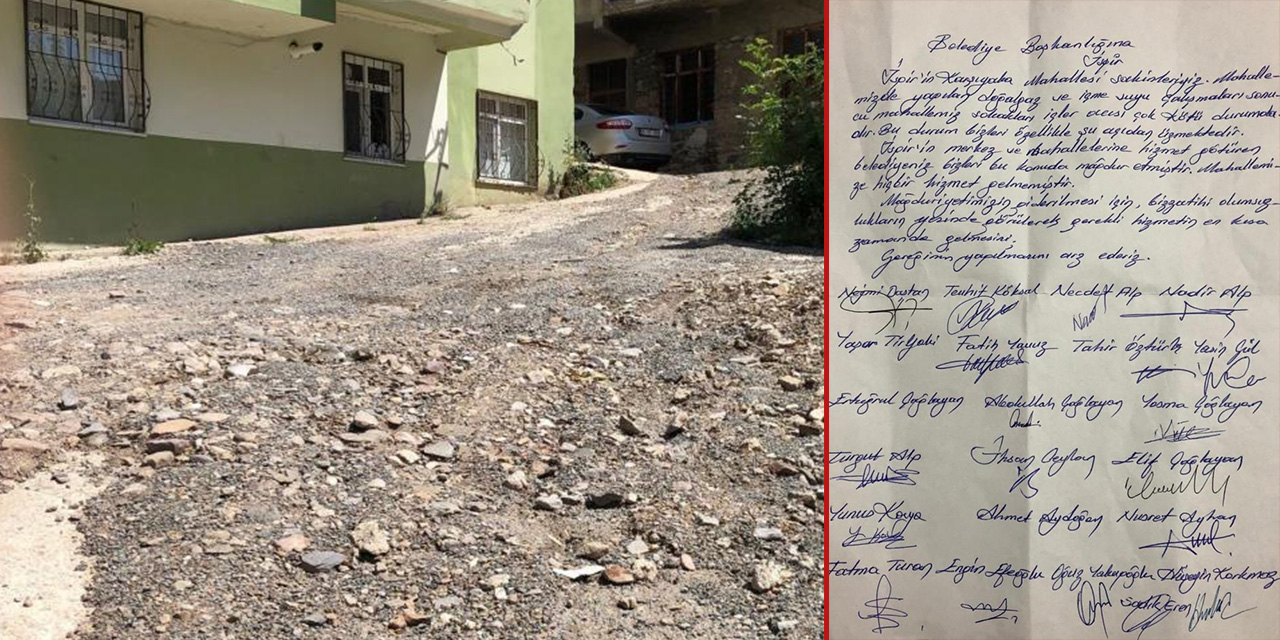 Belediye Başkanlığına
İspir
İspir'in Karşıyaka Mahallesi sakinleriyiz. Mahalle-
mizde yapılan doğalgaz ve içme suyu çalışmaları sonu-
cu mahallemiz sokakları içler acısı çok kötü durumda-
dır. Bu durum bizleri özellikle şu açıdan üzmektedir.
İspir'in merkez ve mahallelerine hizmet götüren
belediyeniz bizleri bu konuda mağdur etmiştir. Mahallemi-
ze hiçbir hizmet gelmemiştir.
Mağduriyetimizin giderilmesi için, bizzatihi olumsuz-
lukların yerinde görülerek gerekli hizmetin en kısa
zamanda gelmesini.
Gereğinin yapılmasını arz ederiz.
Necmi Dastan Tevhit Köksal Necdet Alp Nadir Alp
Yaşar Fatih Yavuz Tahir Öztürk Yasin Gül
Ertuğrul Çağlayan Abdullah Çağlayan Yosma Çağlayan
Turgut Alp İhsan Ceylan Elif Çağlayan
Yunus Kaya Ahmet Aydoğan Nusret Ayhan
Fatma Turan Engin Efeoğlu Oğuz Yakupoğlu Hüseyin Korkmaz
Sadık Eren